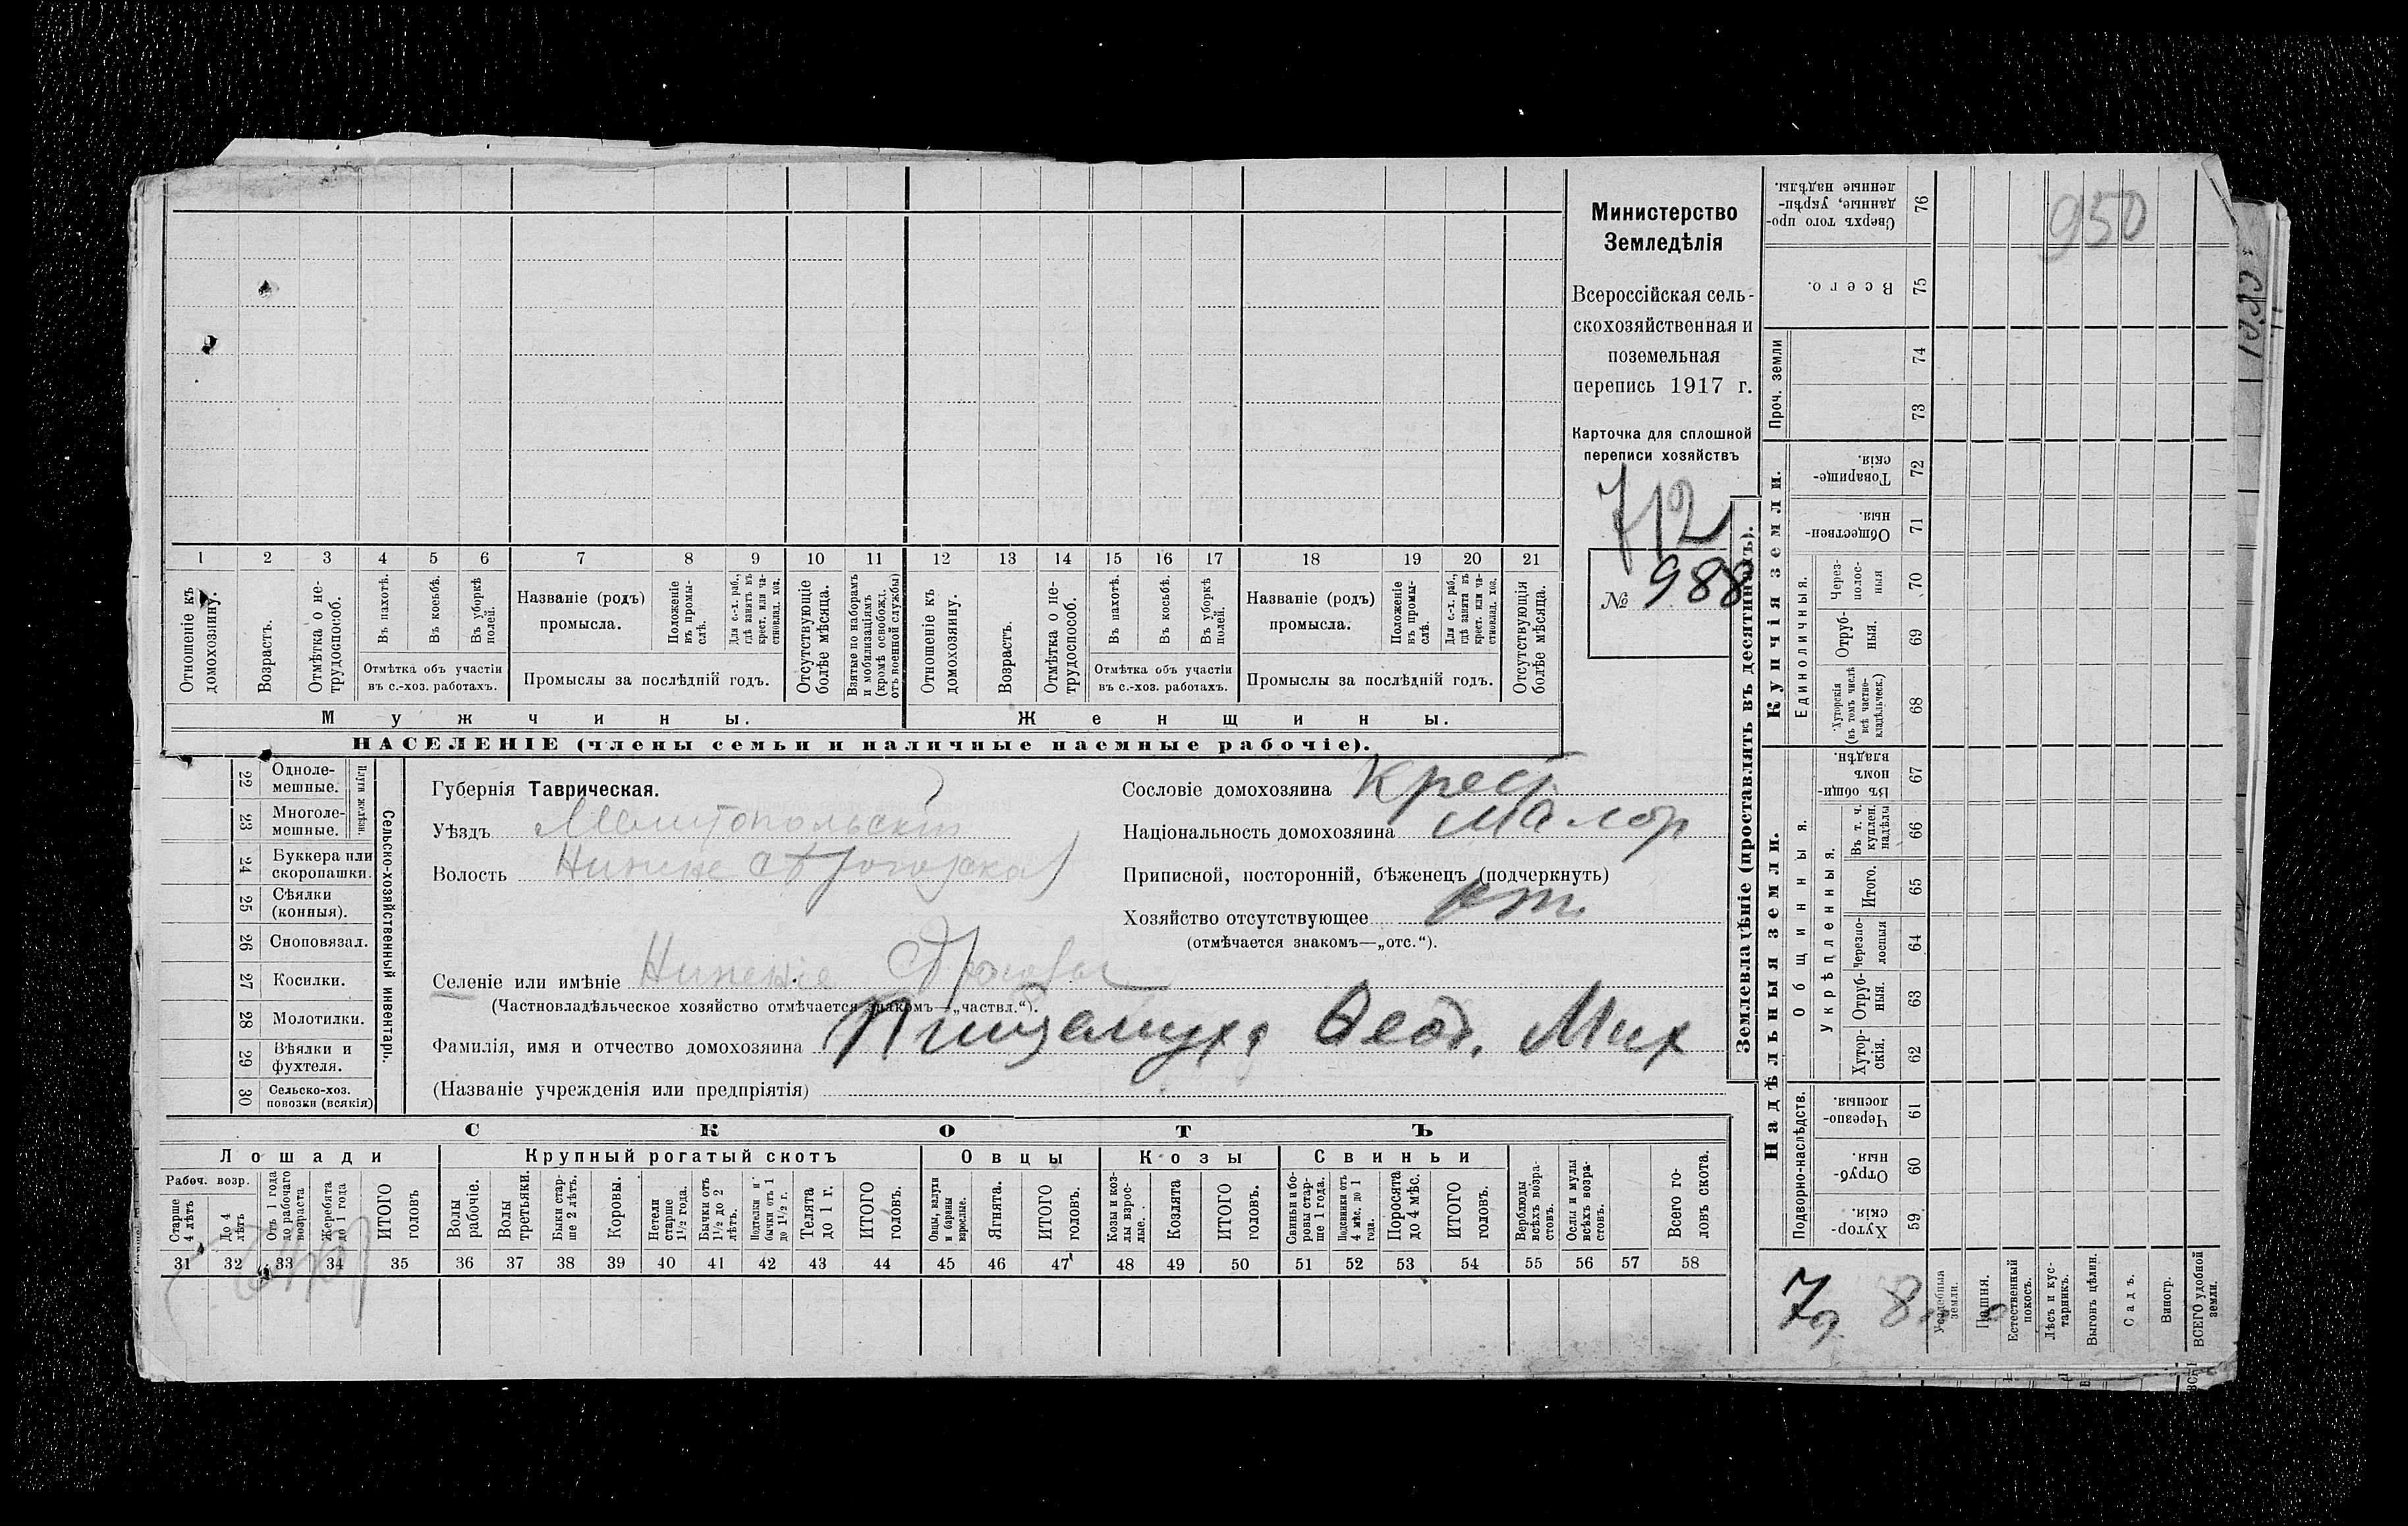 1 2 3 4 5 6 7 8 9 10 11 12 13 14 15 16 17 18 19 20 21
Отношеніе къ домохозяину.
Возрастъ.
Отмѣтка о не-трудоспособ.
Въ пахотѣ.
Въ косьбѣ.
Въ уборкѣ полей.
Отмѣтка объ участіи
въ с.-хоз. работахъ.
Названіе (родъ)
промысла.
Положеніе въ промы-слѣ.
Для с.-х. раб., гдѣ занятъ въ крест. или ча-стновлад. хоз.
Промыслы за послѣдній годъ.
Отсутствующіе болѣе мѣсяца.
Взятые по наборамъ и мобилизаціямъ (кромѣ освобожд. отъ военной службы)
Отношеніе къ домохозяину.
Возрастъ.
Отмѣтка о не-трудоспособ.
Въ пахотѣ.
Въ косьбѣ.
Въ уборкѣ полей.
Отмѣтка объ участіи
въ с.-хоз. работахъ.
Названіе (родъ)
промысла.
Положеніе въ промы-слѣ.
Для с.-х. раб., гдѣ занята въ крест. или ча-стновлад. хоз.
Промыслы за послѣдній годъ.
Отсутствующія болѣе мѣсяца.
Мужчины.
Женщины.
НАСЕЛЕНІЕ (члены семьи и наличные наемные рабочіе).
Министерство
Земледѣлія
Всероссійская сель-
скохозяйственная и
поземельная
перепись 1917 г.
Карточка для сплошной
переписи хозяйствъ
712
№ 988
22 Одноле-
мешные.
23 Многоле-
мешные.
Плуги желѣзн.
24 Буккера или
скоропашки.
25 Сѣялки
(конныя).
26 Сноповязал.
27 Косилки.
28 Молотилки.
29 Вѣялки и
фухтеля.
30 Сельско-хоз.
повозки (всякія)
Сельско-хозяйственный инвентарь.
Губернія Таврическая.
Уѣздъ Мелитопольскій
Волость Нижне
Селеніе или имѣніе Нижніе
(Частновладѣльческое хозяйство отмѣчается знакомъ—„частвл.“).
Фамилія, имя и отчество домохозяина Ѳеод. Мих
(Названіе учрежденія или предпріятія)
Сословіе домохозяина Крест
Національность домохозяина Малор
Приписной, посторонній, бѣженецъ (подчеркнуть)
Хозяйство отсутствующее
(отмѣчается знакомъ—„отс.“).
СКОТЪ
Лошади
Рабоч. возр.
Старше 4 лѣтъ
До 4 лѣтъ
Отъ 1 года до рабочаго возраста
Жеребята до 1 года
ИТОГО головъ
Крупный рогатый скотъ
Волы рабочіе.
Волы третьяки.
Быки стар-ше 2 лѣтъ.
Коровы.
Нетели старше 1½ года.
Бычки отъ 1½ до 2 лѣтъ.
Подтелки и бычки отъ 1 до 1½ г.
Телята до 1 г.
ИТОГО головъ.
Овцы
Овцы, валухи и бараны взрослые.
Ягнята.
ИТОГО головъ.
Козы
Козы и коз-лы взрос-лые.
Козлята
ИТОГО головъ.
Свиньи
Свиньи и бо-ровы стар-ше 1 года.
Подсвинки отъ 4 мѣс. до 1 года.
Поросята до 4 мѣс.
ИТОГО головъ.
Верблюды всѣхъ возра-стовъ.
Ослы и мулы всѣхъ возра-стовъ.
Всего го-ловъ скота.
31 32 33 34 35 36 37 38 39 40 41 42 43 44 45 46 47 48 49 50 51 52 53 54 55 56 57 58
Землевладѣніе (проставлять въ десятинахъ).
Надѣльныя земли.
Купчія земли.
Проч. земли
Подворно-наслѣдств.
Общинныя.
Укрѣпленныя.
Единоличныя.
59 Хутор-скія.
60 Отруб-ныя.
61 Черезпо-лосныя.
62 Хутор-скія.
63 Отруб-ныя.
64 Черезпо-лосныя
65 Итого.
66 Въ т. ч. куплен. надѣлы
67 Въ общи-номъ владѣн.
68 Хуторскія (въ томъ числѣ всѣ частно-владѣльческ.)
69 Отруб-ныя.
70 Через-полос-ныя
71 Обществен-ныя.
72 Товарище-скія.
73
74
75 Всего.
76 Сверхъ того про-данные, укрѣп-ленные надѣлы.
950
Усадебныя земли.
Пашня.
Естественный покосъ.
Лѣсъ и кус-тарникъ.
Выгонъ цѣлин.
Садъ.
Виногр.
ВСЕГО удобной земли.